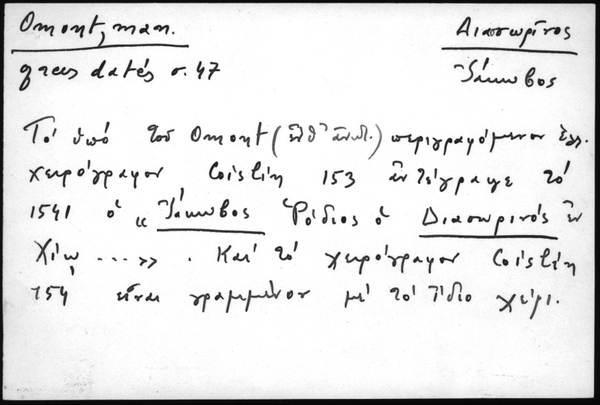 Omont, man. Διασωρῖνος
grecs datés σ. 47 Ἰάκωβος
Τό ὑπό τοῦ Omont (ἔνθ' ἀνωτ.) περιγραφόμενον ἑλλ.
χειρόγραφον Coislin 153 ἀντέγραψε τό
1541 ὁ « Ἰάκωβος Ῥόδιος ὁ Διασωρινός ἐν
Χίῳ ....» . Καί τό χειρόγραφον Coislin
154 εἶναι γραμμένον μέ τό ἴδιο χέρι.